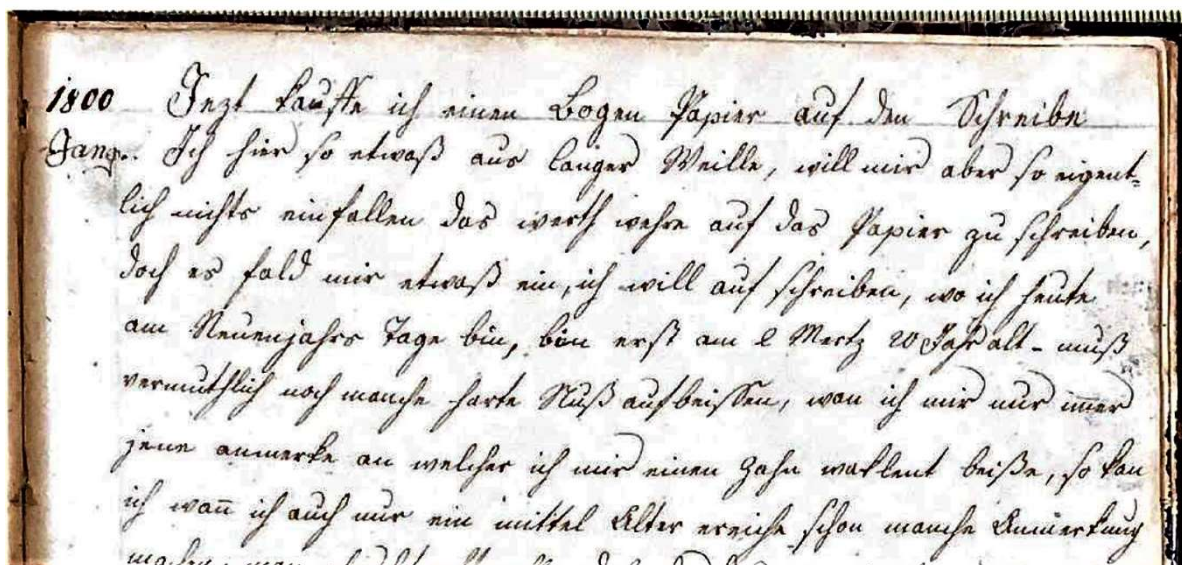 1800 Jezt kauffe ich einen Bogen Papier auf den Schreibe
Jang. Ich hier so etwaß aus langer Weille, will mir aber so eigent=
lich nichts einfallen das werth wehre auf das Papier zu schreiben,
doch es fald mir etwaß ein, ich will auf schreiben, wo ich heute
am Neuenjahrs Tage bin, bin erst am 2 Mertz 20 Jahr alt - muß
vermuthlich noch manche harte Nuß aufbeissen, wan ich mir nur im̄er
jene anmerke an welcher ich mir einen Zahn waklent beiße, so kan
ich wan̄ ich auch nur ein mittel Alter ereiche schon manche Anmerkung
machen